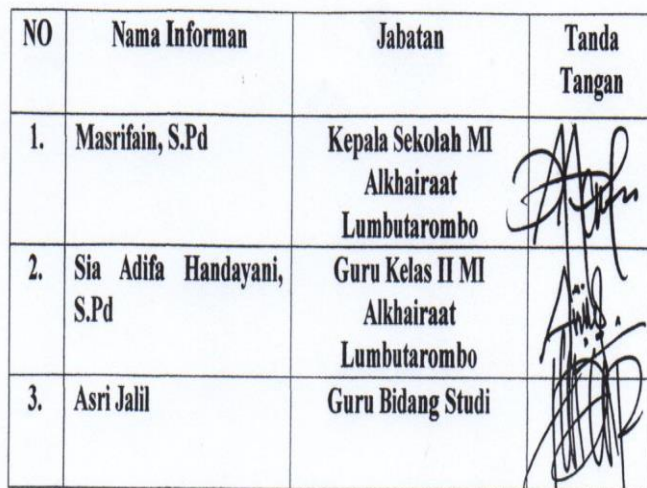 NO Nama Informan Jabatan Tanda
Tangan
1. Masrifain, S.Pd Kepala Sekolah MI
Alkhairaat
Lumbutarombo
2. Sia Adifa Handayani, Guru Kelas II MI
S.Pd Alkhairaat
Lumbutarombo
3. Asri Jalil Guru Bidang Studi